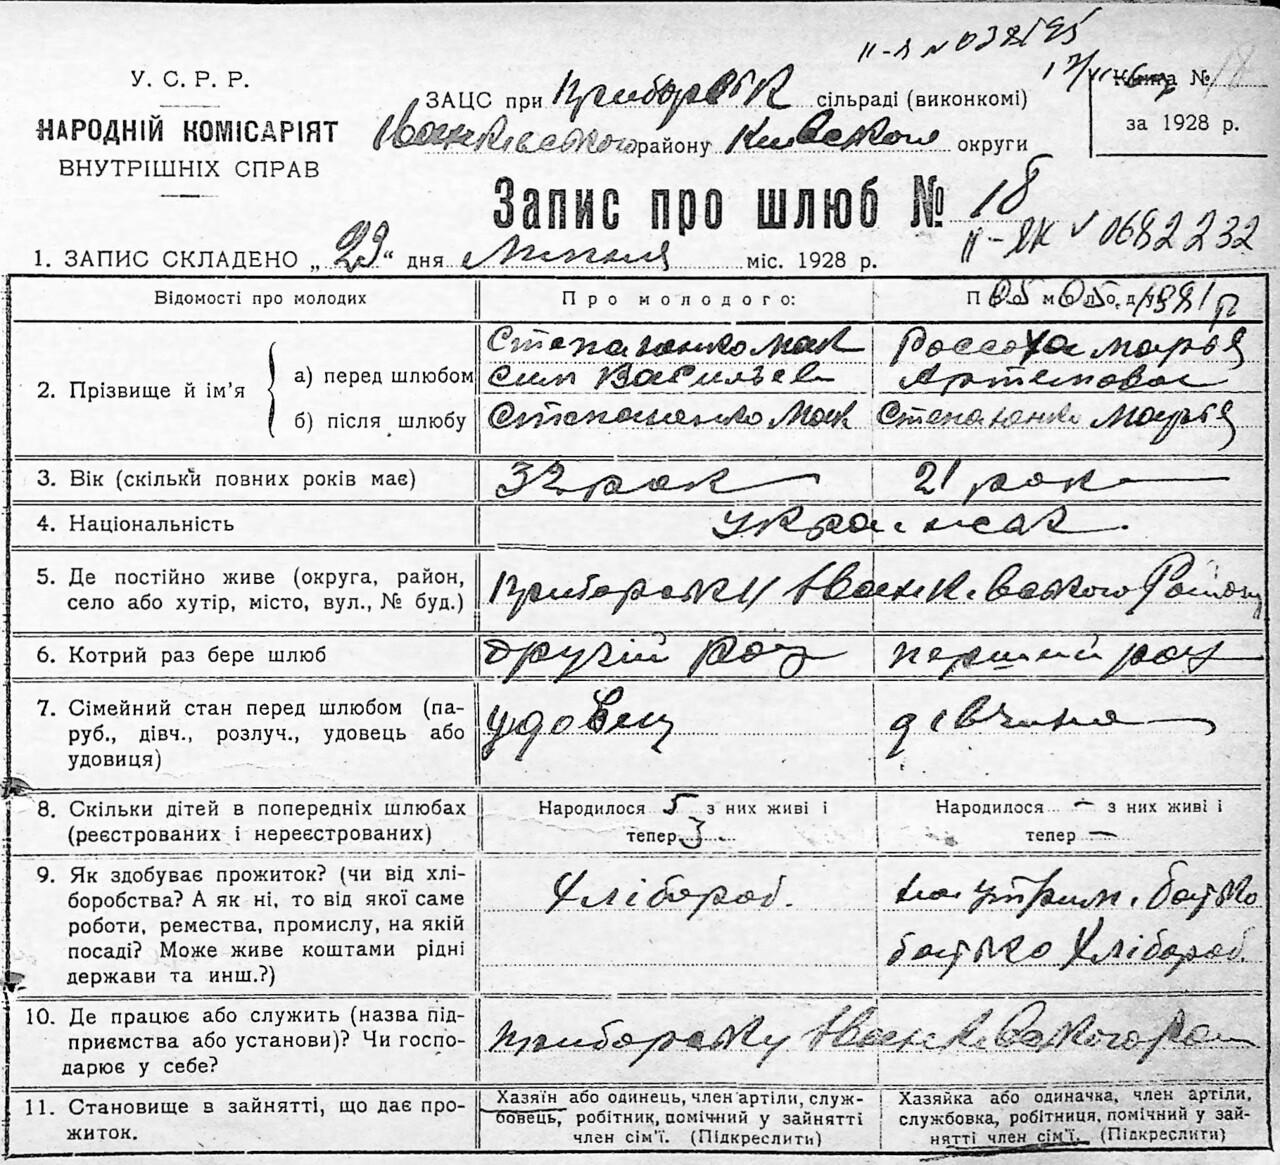 II-Я № 038595
У. С. Р. Р.
НАРОДНІЙ КОМІСАРІЯТ
ВНУТРІШНІХ СПРАВ
ЗАЦС при Приборськ сільраді (виконкомі)
Іванківського району Київського округи
Книга № 18
за 1928 р.
Запис про шлюб № 18
II-ЯК № 0682232
1. ЗАПИС СКЛАДЕНО „29“ дня Липня міс. 1928 р.
05 05 1981 р
Відомості про молодих
Про молодого:
2. Прізвище й ім’я
а) перед шлюбом
Степаненко Мак
сим Васильев
Россоха Марья
Артемовна
б) після шлюбу
Степаненко Мак
Степаненко Марья
3. Вік (скільки повних років має)
32 рок
21 рок
4. Національність
Українськ.
5. Де постійно живе (округа, район, село або хутір, місто, вул., № буд.)
Приборську Іванківського Району
6. Котрий раз бере шлюб
другій раз
перший раз
7. Сімейний стан перед шлюбом (паруб., дівч., розлуч., удовець або удовиця)
удовец
дівчина
8. Скільки дітей в попередніх шлюбах (реєстрованих і нереєстрованих)
Народилося 5 з них живі і
тепер 3
Народилося – з них живі і
тепер –
9. Як здобуває прожиток? (чи від хліборобства? А як ні, то від якої саме роботи, ремества, промислу, на якій посаді? Може живе коштами рідні держави та инш.?)
Хлібороб.
на утрим. батько
батько Хлібороб.
10. Де працює або служить (назва підприємства або установи)? Чи господарює у себе?
Приборську Іванківського рай
11. Становище в зайнятті, що дає прожиток.
Хазяїн або одинець, член артіли, службовець, робітник, помічний у зайнятті член сім’ї. (Підкреслити)
Хазяйка або одиначка, член артіли, службовка, робітниця, помічний у зайнятті член сім’ї. (Підкреслити)